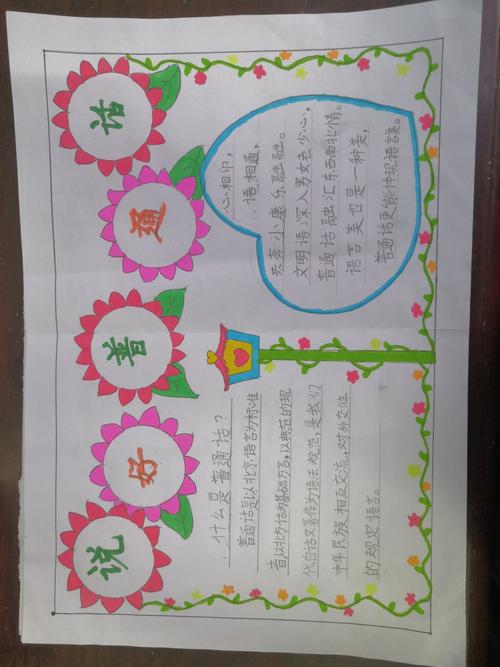 说好普通话
什么是普通话?
普通话是以北京语言为标准
音,以北方话为基础方言,以典范的现
代白话文著作为语法规范,是我们
中华民族相互交流,对外交往
的规定语言。
心相印,
语相通,
共奔小康乐融融。
文明语深入男女老少心,
普通话融汇东西南北情。
语言美也是一种美,
普通话更能体现语言美。